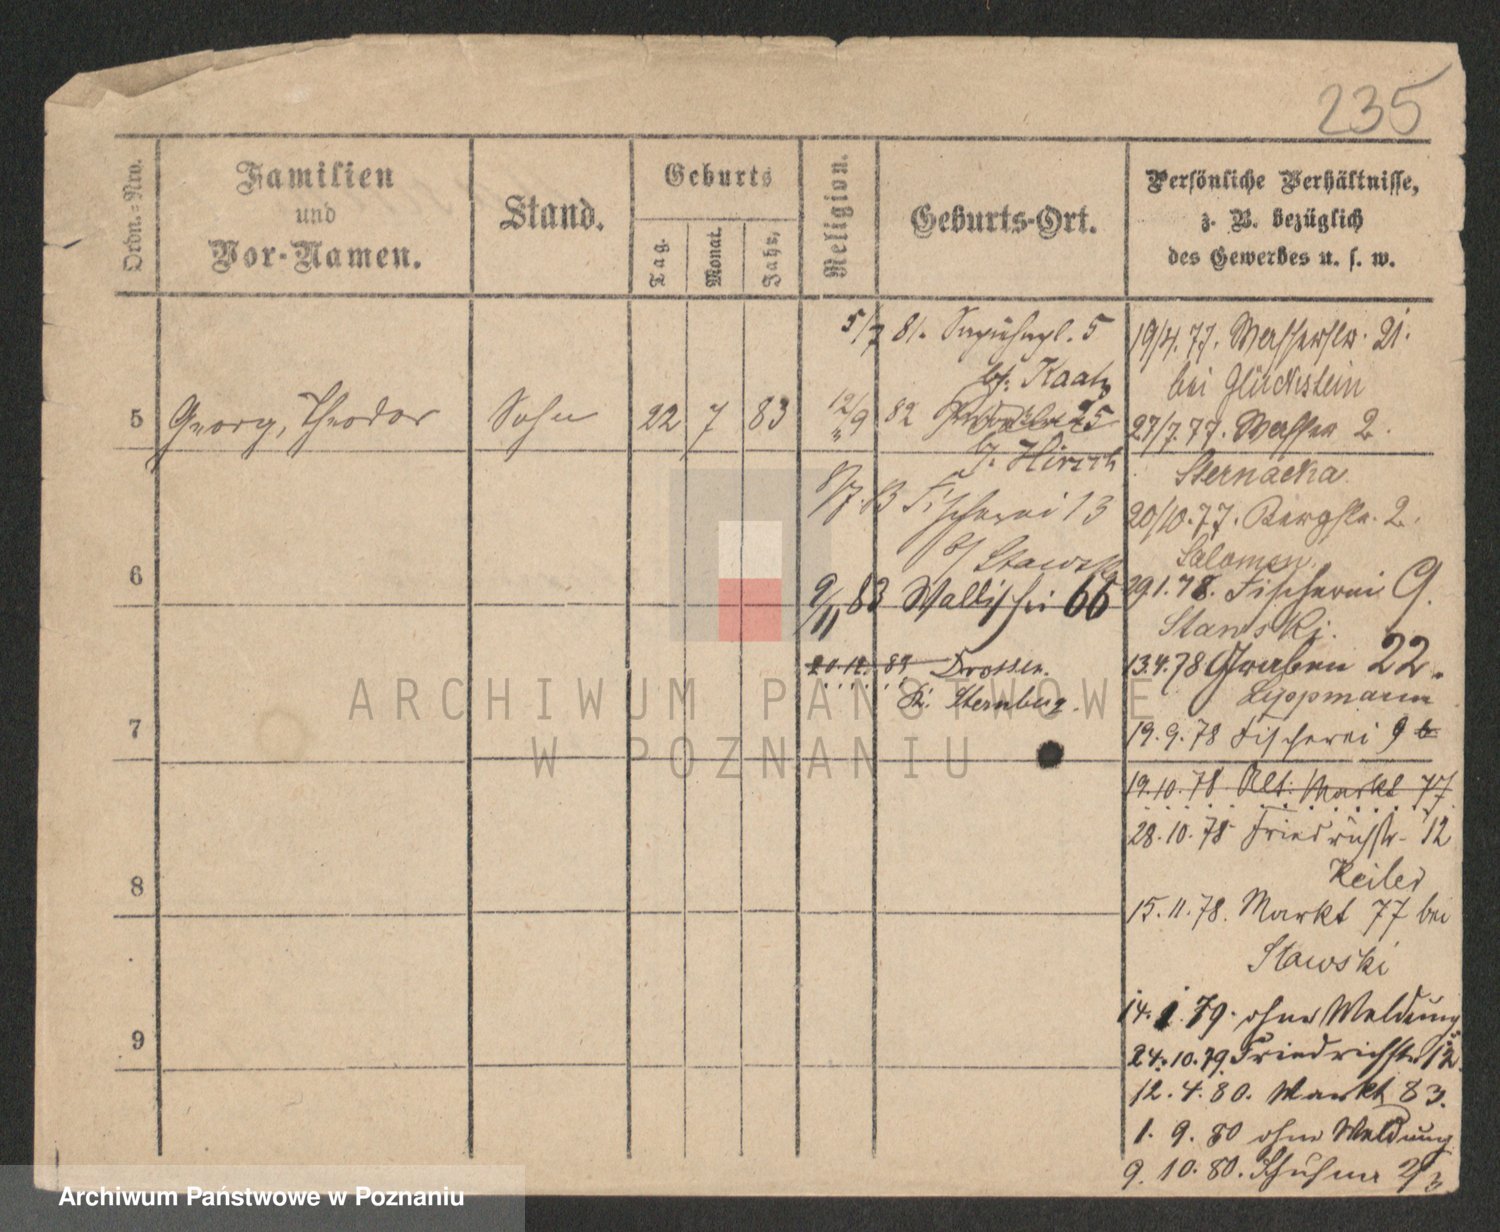 235
Ordn.-Nro.
Familien
und
Vor-Namen.
Stand.
Geburts
Tag.
Monat.
Jahr,
Religion.
Geburts-Ort.
Persönliche Verhältnisse,
z. B. bezüglich
des Gewerbes u. s. w.
5
Georg, Theodor
Sohn
22
7
83
6
7
8
9
5/7 81. 5
bei Kaatz
12/9 82
b. Hirsch
8/7. 83 Fischerei 13
b/ Stawski
9/11 83 Wallischei 66
20.12. 84 Drossen.
Kr. Sternberg.
19/4. 77. Wasserstr. 21.
bei Glückstein
27/7. 77. Wasser 2.
Sternacka.
20/10. 77. Bergstr. 2.
Salomon.
29.1.78. Fischerei 9.
Stawski.
13.4.78 Graben 22.
Lippmann
19.9.78 Fischerei 9 b
19.10.78 Alt. Markt 77
28.10.78 Friedrichstr. 12
Keiler
15.11.78. Markt 77 bei
Stawski
14.1.79. ohne Meldung
24.10.79. Friedrichstr 12.
12.4.80. Markt 83.
1.9.80 ohne Meldung
9.10.80.
ARCHIWUM PAŃSTWOWE
W POZNANIU
Archiwum Państwowe w Poznaniu